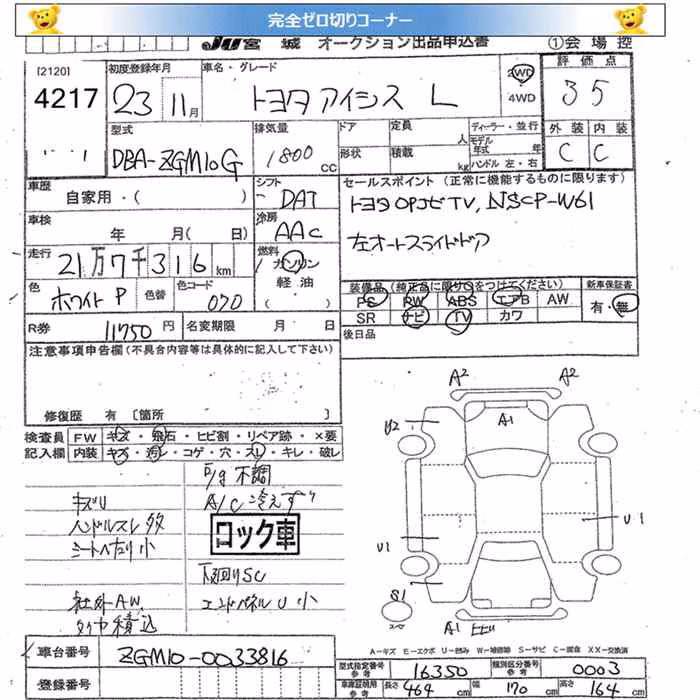 完全ゼロ切りコーナー
JU宮城 オークション出品申込書 ①会場控
[2120] 初度登録年月 車名・グレード 2WD 4WD 評価点
4217 23年11月 トヨタ アイシス L 35
型式 排気量 ドア 定員 人 ディーラー・並行 外装 内装
DBA-ZGM10G 1800cc 形状 積載 kg モデル年式 年 ハンドル 左・右 C C
車歴 自家用・( ) シフト DAT セールスポイント (正常に機能するものに限ります)
車検 年 月(日) 冷房 AAC トヨタOPナビTV, NSCP-W61
走行 21万7千316km 燃料 ガソリン 軽油 左オートスライドドア
色 ホワイトP 色替 色コード 070 装備品(純正品に限り○をつけてください) 新車保証書
PS PW ABS エアB AW 有・無
R券 11750円 名変期限 月 日 SR ナビ TV カワ
注意事項申告欄(不具合内容等は具体的に記入して下さい) 後日品
修復歴 有 [箇所 ]
検査員 FW キズ・飛石・ヒビ割・リペア跡・×要
記入欄 内装 キズ・汚レ・コゲ・穴・スレ・キレ・破レ
A2 A2
A1
U2
U1
U1
S1
A1
キズU
ハンドルスレ多
シートへたり小
社外AW
P/g不調
A/C冷えず
ロック車
下回りSC
エンドパネルU小
A-キズ E-エクボ U-凹み W-補修跡 S-サビ C-腐食 XX-交換済
車台番号 ZGM10-0033816
登録番号
型式指定番号 参考 16350 類別区分番号 参考 0003
車庫証明用 参考 長さ 464cm 幅 170cm 高さ 164cm